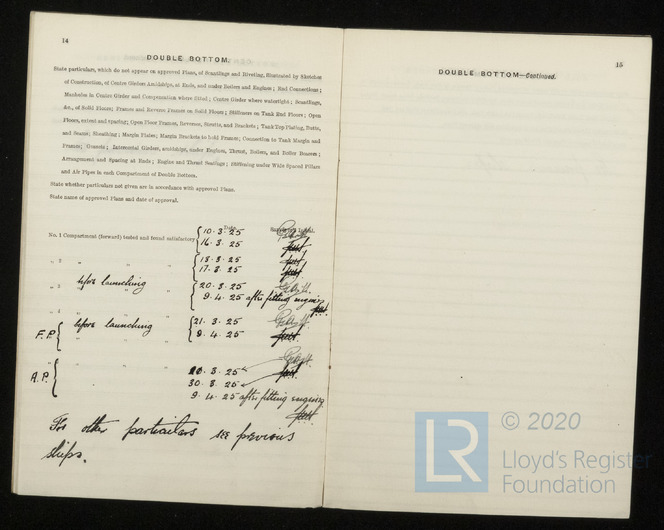 14
DOUBLE BOTTOM.
State particulars, which do not appear on approved Plans, of Scantlings and Riveting, illustrated by Sketches
of Construction, of Centre Girders Amidships, at Ends, and under Boilers and Engines; End Connections;
Manholes in Centre Girder and Compensation where fitted; Centre Girder where watertight; Scantlings,
&c., of Solid Floors; Frames and Reverse Frames on Solid Floors; Stiffeners on Tank End Floors; Open
Floors, extent and spacing; Open Floor Frames, Reverses, Struts, and Brackets; Tank Top Plating, Butts,
and Seams; Sheathing; Margin Plates; Margin Brackets to hold Frames; Connection to Tank Margin and
Frames; Gussets; Intercostal Girders, amidships, under Engines, Thrust, Boilers, and Boiler Bearers;
Arrangement and Spacing at Ends; Engine and Thrust Seatings; Stiffening under Wide Spaced Pillars
and Air Pipes in each Compartment of Double Bottom.
State whether particulars not given are in accordance with approved Plans.
State name of approved Plans and date of approval.
Date. Surveyor's Initial.
No. 1 Compartment (forward) tested and found satisfactory { 10·3·25
16·3·25
„ 2 „ „ „ { 13·3·25
17·3·25
„ 3 before launching { 20·3·25
9·4·25 after fitting engines
„ 4 „ „ „
F.P. { before launching { 21·3·25
9·4·25
A.P. { 3·25
30·3·25
9·4·25 after fitting engines
For other particulars see previous
ships.
15
DOUBLE BOTTOM—Continued.
LR © 2020
Lloyd's Register
Foundation